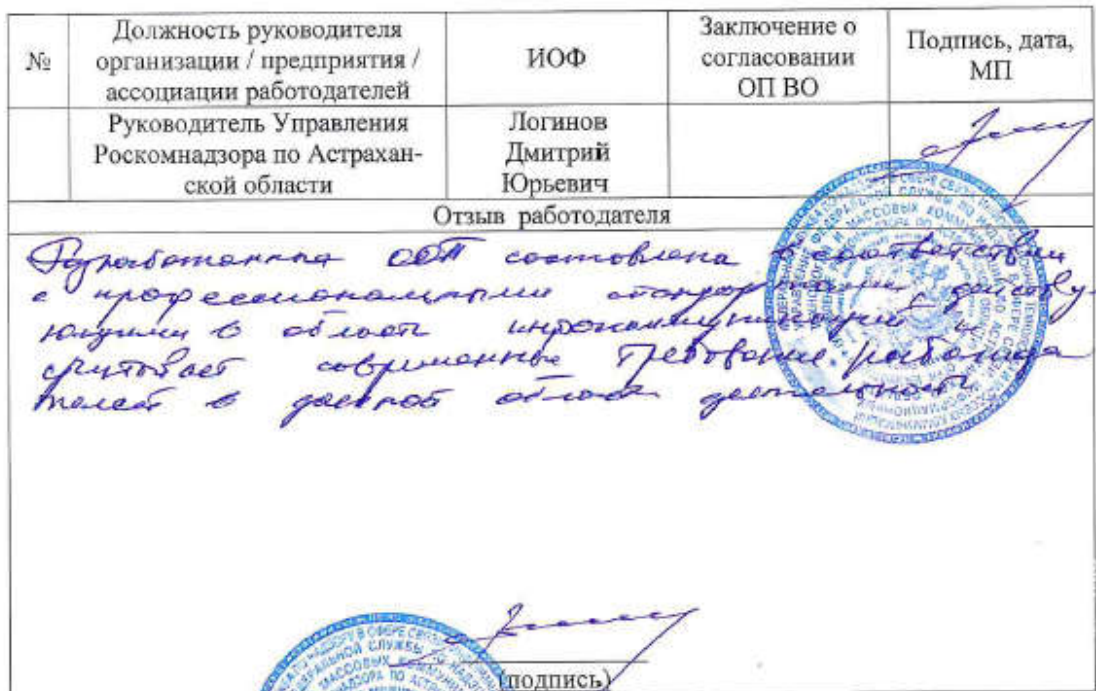 №
Должность руководителя
организации / предприятия /
ассоциации работодателей
ИОФ
Заключение о
согласовании
ОП ВО
Подпись, дата,
МП
Руководитель Управления
Роскомнадзора по Астрахан-
ской области
Логинов
Дмитрий
Юрьевич
Отзыв работодателя
Разработанная ООП составлена в соответствии
с профессиональными стандартами, действу-
ющими в области инфокоммуникаций и
учитывает современные требования работода
телей в данной области деятельности
(подпись)